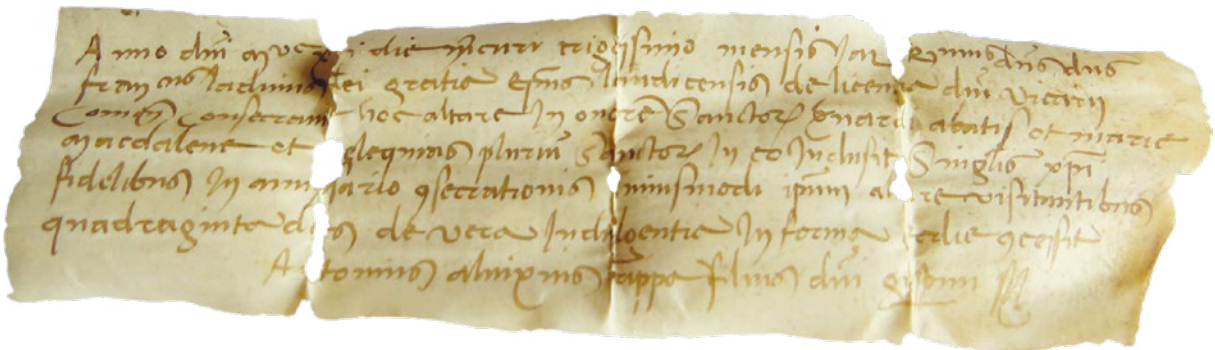 Anno dni die mercurii trigesimo mensis Ian dns dns
fran cus ladinus dei gratia eps laudicensis de licentia dni vicarii
Comen consecravit hoc altare In onore Sanctor bnardi abatis et marie
magdalene et relequias pluriu Sanctor In eo Inclusit Singlis xpi
fidelibus In aniversario consecrationis huiusmodi ipsum altare visitantibus
quadraginta dies de vera Indulgentia In forma eclie concessit
Antonius filius dni